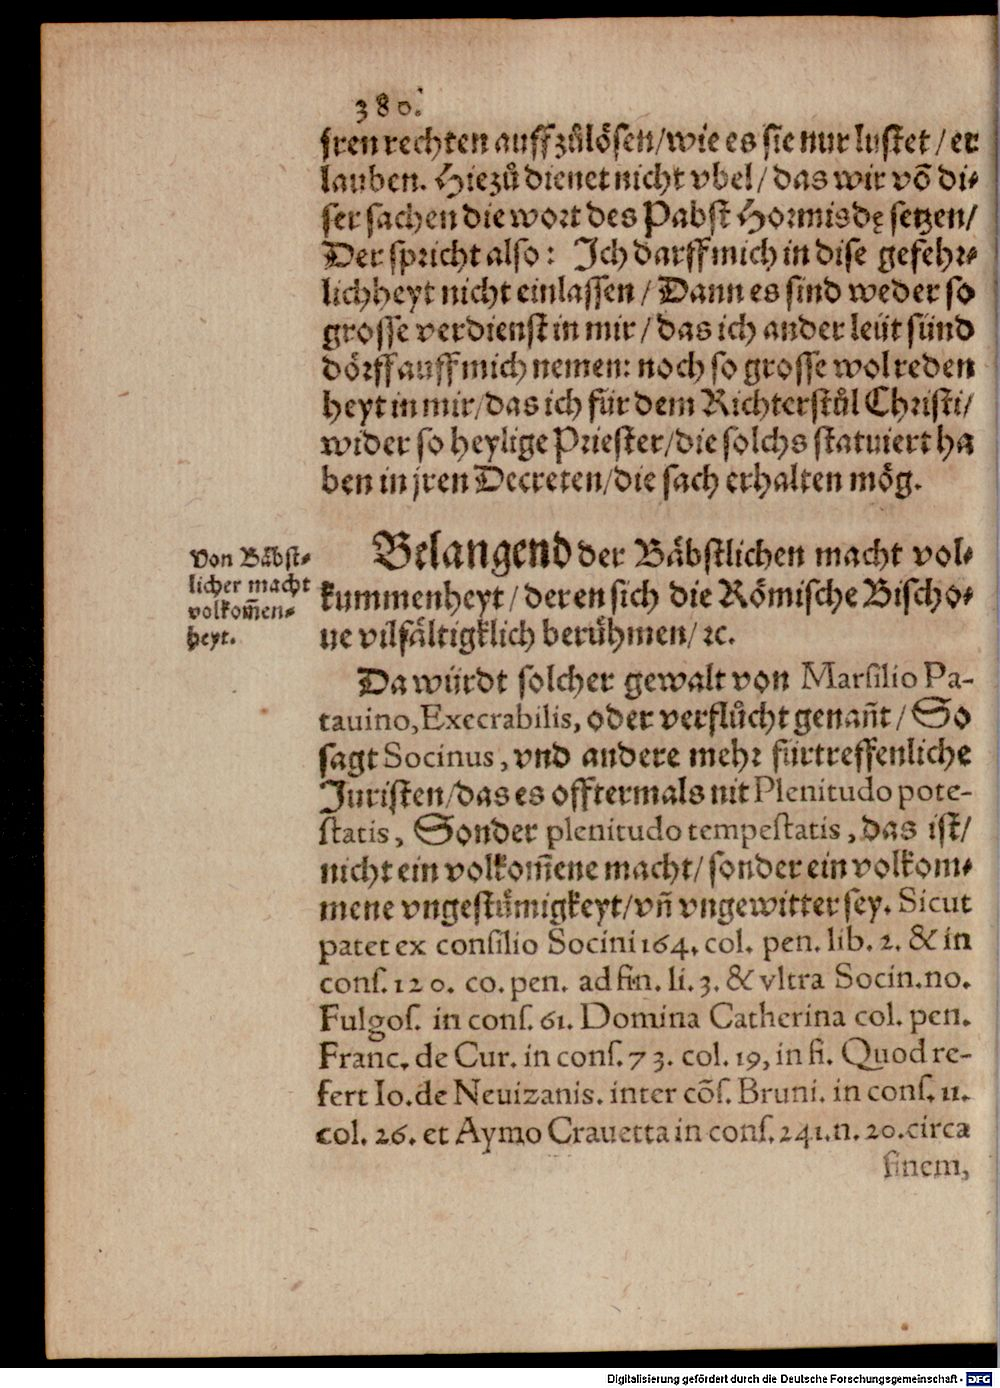 380.
jren rechten auffzůlösen/wie es sie nur lustet/er
lauben. Hiezů dienet nicht vbel/das wir võ di⸗
ser sachen die wort des Pabst Hormisdę setzen/
Der spricht also: Ich darff mich in dise gefehr⸗
lichheyt nicht einlassen/Dann es sind weder so
grosse verdienst in mir/das ich ander leüt sünd
dörff auff mich nemen: noch so grosse wolreden
heyt in mir/das ich für dem Richterstůl Christi/
wider so heylige Priester/die solchs statuiert ha
ben in jren Decreten/die sach erhalten mög.
Von Bäbst⸗
licher macht
volkom̃en⸗
heyt.
Belangend der Bäbstlichen macht vol⸗
kummenheyt/deren sich die Römische Bischo⸗
ue vilfältigklich berühmen/ꝛc.
Da würdt solcher gewalt von Marsilio Pa-
tauino, Execrabilis, oder verflůcht genañt/So
sagt Socinus, vnd andere mehr fürtreffenliche
Juristen/das es offtermals nit Plenitudo pote-
statis, Sonder plenitudo tempestatis, das ist/
nicht ein volkom̃ene macht/sonder ein volkom⸗
mene vngestümigkeyt/vñ vngewitter sey. Sicut
patet ex consilio Socini 164. col. pen. lib. 2. & in
cons. 120. co. pen. ad fin. li. 3. & vltra Socin. no.
Fulgos. in cons. 61. Domina Catherina col. pen.
Franc. de Cur. in cons. 73. col. 19, in fi. Quod re-
fert Io. de Neuizanis. inter cõs. Bruni. in cons. 11.
col. 26. et Aymo Crauetta in cons. 241. n. 20. circa
finem,
Digitalisierung gefördert durch die Deutsche Forschungsgemeinschaft - DFG